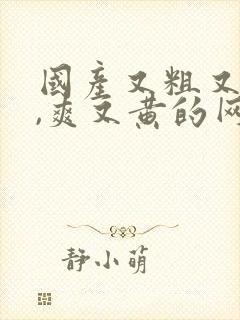 國產又粗又
,爽又黄的网
静小萌